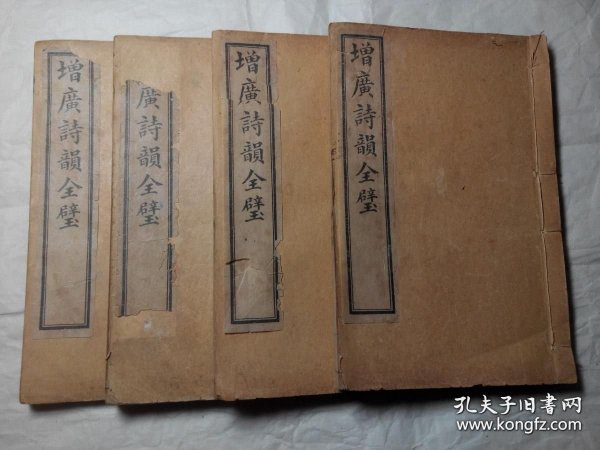 增廣詩韻全璧
廣詩韻全璧
增廣詩韻全璧
增廣詩韻全璧
孔夫子旧书网
www.kongfz.com